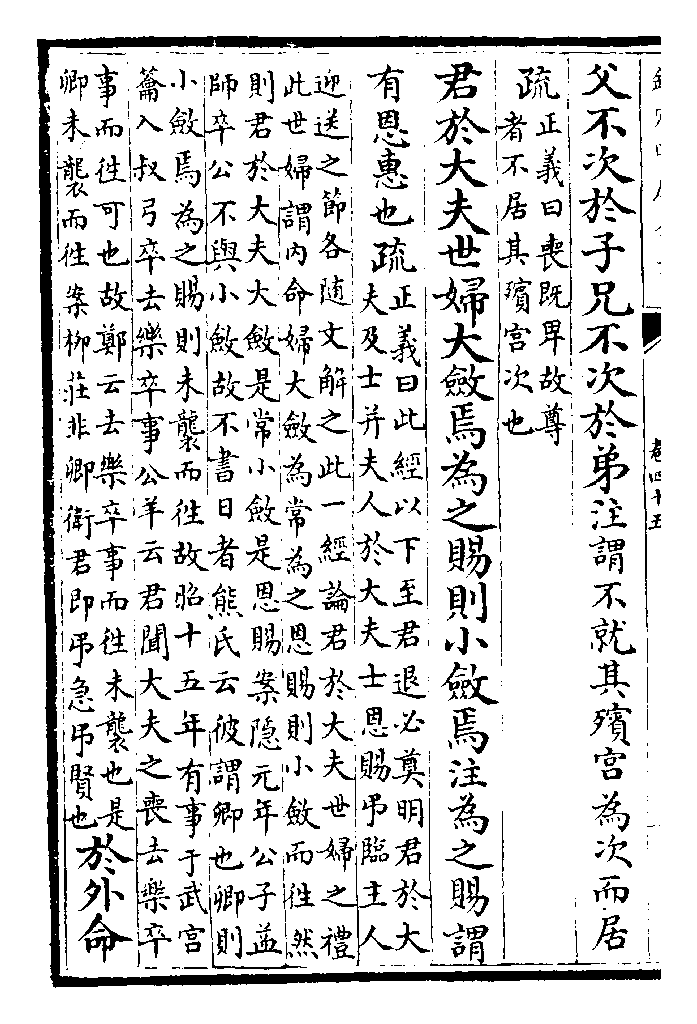 卷四十五
父不次於子兄不次於弟注謂不就其殯宫為次而居
疏正義曰喪既卑故尊
者不居其殯宫次也
君於大夫世婦大斂焉為之賜則小斂焉注為之賜謂
有恩惠也疏正義曰此經以下至君退必奠明君於大
夫及士并夫人於大夫士恩賜弔臨主人
迎送之節各随文解之此一經論君於大夫世婦之禮
此世婦謂内命婦大斂為常為之恩賜則小斂而徃然
則君於大夫大斂是常小斂是恩賜案隐元年公子益
師卒公不與小斂故不書日者熊氏云彼謂卿也卿則
小斂焉為之賜則未襲而徃故昭十五年有事于武宫
籥入叔弓卒去樂卒事公羊云君聞大夫之喪去樂卒
事而徃可也故鄭云去樂卒事而徃未襲也是
卿未襲而徃案栁莊非卿衛君即弔急弔賢也
於外命